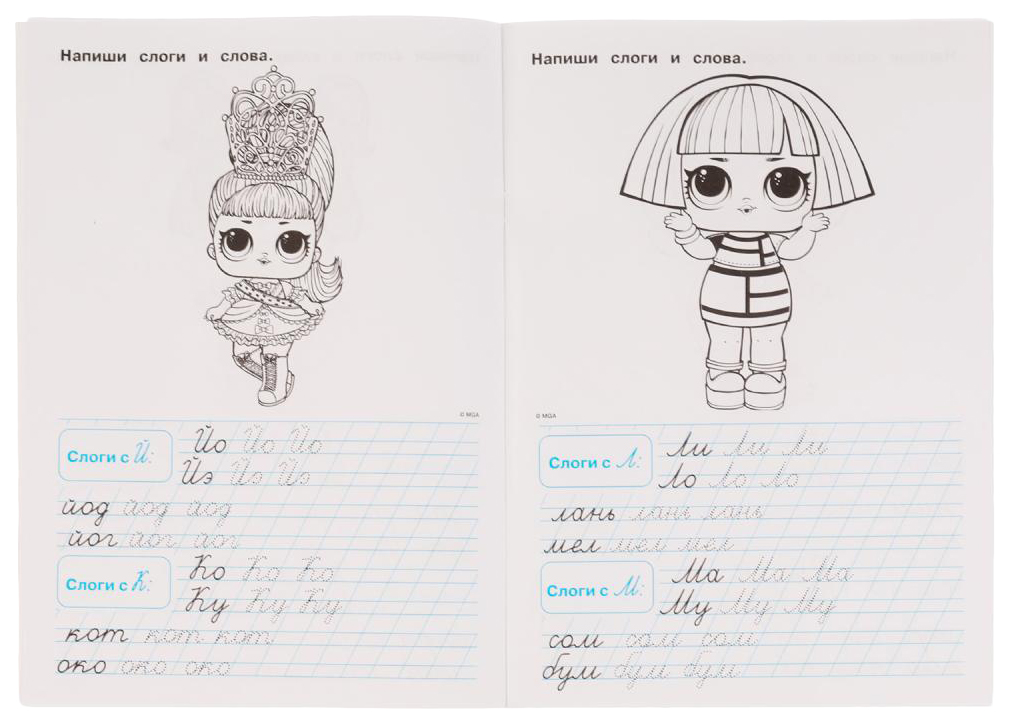 Напиши слоги и слова.
© MGA
Слоги с Й:
Йо Йо Йо
Йэ Йэ Йэ
йод йод йод
йог йог йог
Слоги с К:
Ко Ко Ко
Ку Ку Ку
кот кот кот
око око око
Напиши слоги и слова.
© MGA
Слоги с Л:
Ли Ли Ли
Ло Ло Ло
лань лань лань
мел мел мел
Слоги с М:
Ма Ма Ма
Му Му Му
сом сом сом
бум бум бум